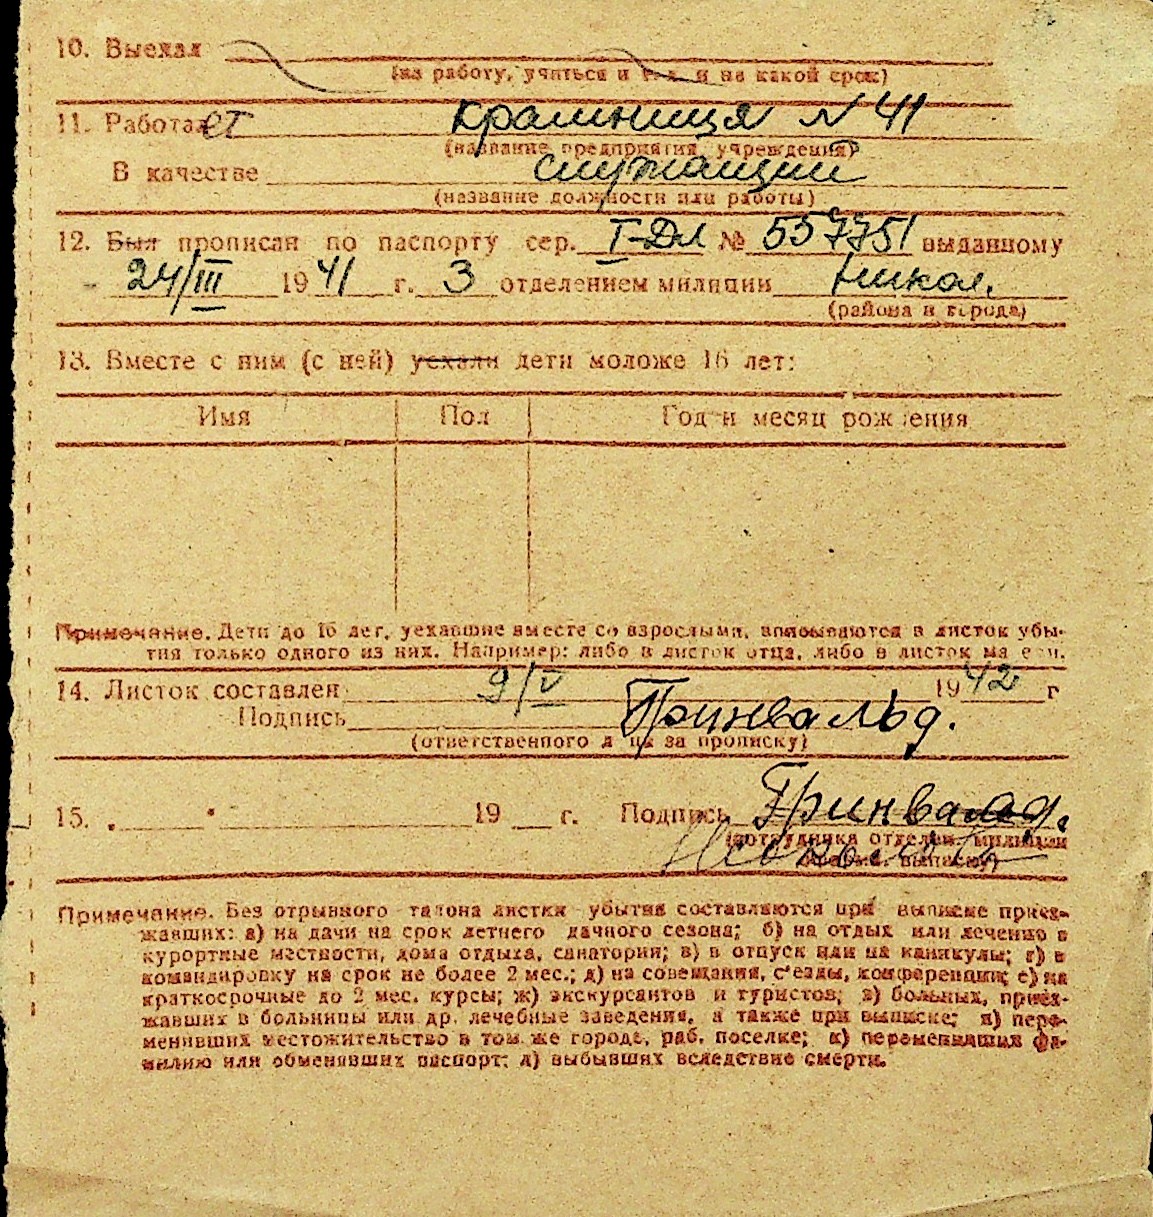 10. Выехал
(на работу, учиться и т. д. и на какой срок)
11. Работает крамниця № 41
(название предприятия, учреждения)
В качестве служащий
(название должности или работы)
12. Был прописан по паспорту сер. I-Дл № 557751 выданному
24/III 1941 г. 3 отделением милиции Никол.
(района и города)
13. Вместе с ним (с ней) уехали дети моложе 16 лет:
Имя Пол Год и месяц рождения
Примечание. Дети до 16 лет, уехавшие вместе со взрослыми, вписываются в листок убы-
тия только одного из них. Например: либо в листок отца, либо в листок матери.
14. Листок составлен 9/V 1942 г
Подпись Гринвальд.
(ответственного лица за прописку)
15. „ “ 19 г. Подпись Гринвальд.
(сотрудника отделен. милиции
выписку)
Примечание. Без отрывного талона листки убытия составляются при выписке приез-
жавших: а) на дачи на срок летнего дачного сезона; б) на отдых или лечение в
курортные местности, дома отдыха, санатории; в) в отпуск или на каникулы; г) в
командировку на срок не более 2 мес.; д) на совещания, с'езды, конференции; е) на
краткосрочные до 2 мес. курсы; ж) экскурсантов и туристов; з) больных, приез-
жавших в больницы или др. лечебные заведения, а также при выписке; и) пере-
менивших местожительство в том же городе, раб. поселке; к) переменивших фа-
милию или обменявших паспорт; л) выбывших вследствие смерти.